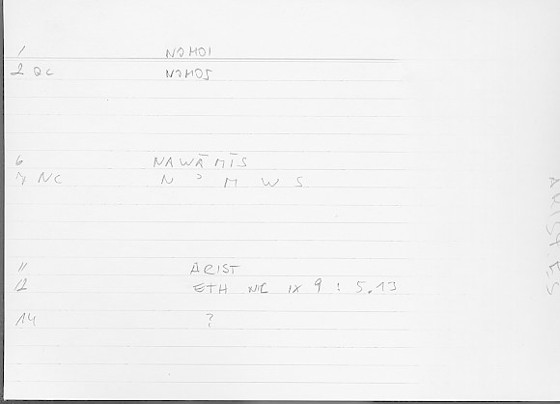 1 NOMOI
2 QC NOMOS
6 NAWĀMĪS
7 NC N ɔ M W S
11 ARIST
12 ETH NIC IX 9 : 5.13
14 ?